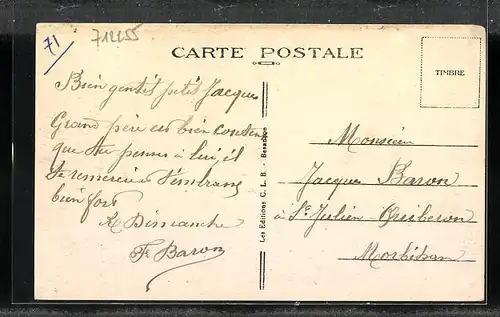 71
712255
CARTE POSTALE
TIMBRE
Bien gentil petit Jacques
Grand père est bien content
que tu penses à lui, il
te remercie t'embrasse
bien fort
A Dimanche
Fr Baron
Les Editions C. L. B. - Besançon
Monsieur
Jacques Baron
à St Julien - Quiberon
Morbihan